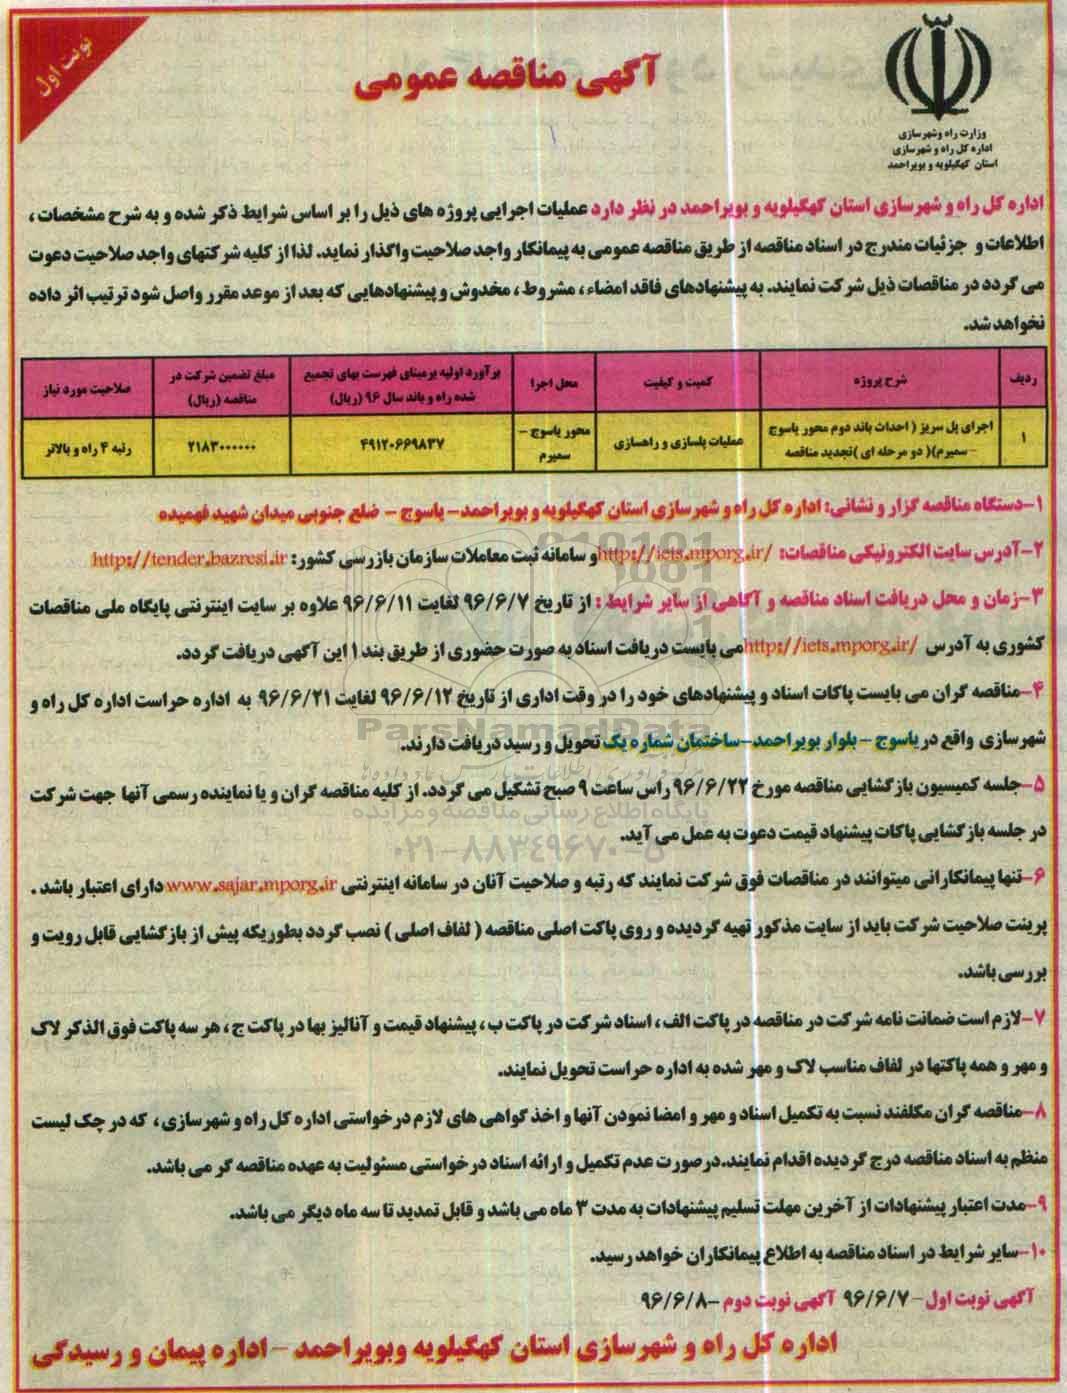 نوبت اول
آگهی مناقصه عمومی
وزارت راه وشهرسازی
اداره کل راه و شهرسازی
استان کهگیلویه و بویراحمد
اداره کل راه و شهرسازی استان کهگیلویه و بویراحمد در نظر دارد عملیات اجرایی پروژه های ذیل را بر اساس شرایط ذکر شده و به شرح مشخصات ،
اطلاعات و جزئیات مندرج در اسناد مناقصه از طریق مناقصه عمومی به پیمانکار واجد صلاحیت واگذار نماید. لذا از کلیه شرکتهای واجد صلاحیت دعوت
می گردد در مناقصات ذیل شرکت نمایند. به پیشنهادهای فاقد امضاء ، مشروط ، مخدوش و پیشنهادهایی که بعد از موعد مقرر واصل شود ترتیب اثر داده
نخواهد شد.
ردیف شرح پروژه کمیت و کیفیت محل اجرا برآورد اولیه برمبنای فهرست بهای تجمیع شده راه و باند سال ۹۶ (ریال) مبلغ تضمین شرکت در مناقصه (ریال) صلاحیت مورد نیاز
۱ اجرای پل سریز ( احداث باند دوم محور یاسوج – سمیرم)( دو مرحله ای )تجدید مناقصه عملیات پلسازی و راهسازی محور یاسوج – سمیرم ۴۹۱۲۰۶۶۹۸۳۷ ۲۱۸۳۰۰۰۰۰۰ رتبه ۴ راه و بالاتر
۱-دستگاه مناقصه گزار و نشانی: اداره کل راه و شهرسازی استان کهگیلویه و بویراحمد- یاسوج - ضلع جنوبی میدان شهید فهمیده
۲-آدرس سایت الکترونیکی مناقصات: http://iets.mporg.ir/ و سامانه ثبت معاملات سازمان بازرسی کشور: http://tender.bazresi.ir
۳-زمان و محل دریافت اسناد مناقصه و آگاهی از سایر شرایط : از تاریخ ۹۶/۶/۷ لغایت ۹۶/۶/۱۱ علاوه بر سایت اینترنتی پایگاه ملی مناقصات
کشوری به آدرس http://iets.mporg.ir/ می بایست دریافت اسناد به صورت حضوری از طریق بند ۱ این آگهی دریافت گردد.
۴-مناقصه گران می بایست پاکات اسناد و پیشنهادهای خود را در وقت اداری از تاریخ ۹۶/۶/۱۲ لغایت ۹۶/۶/۲۱ به اداره حراست اداره کل راه و
شهرسازی واقع در یاسوج - بلوار بویراحمد-ساختمان شماره یک تحویل و رسید دریافت دارند.
۵-جلسه کمیسیون بازگشایی مناقصه مورخ ۹۶/۶/۲۲ راس ساعت ۹ صبح تشکیل می گردد. از کلیه مناقصه گران و یا نماینده رسمی آنها جهت شرکت
در جلسه بازگشایی پاکات پیشنهاد قیمت دعوت به عمل می آید.
۶-تنها پیمانکارانی میتوانند در مناقصات فوق شرکت نمایند که رتبه و صلاحیت آنان در سامانه اینترنتی www.sajar.mporg.ir دارای اعتبار باشد .
پرینت صلاحیت شرکت باید از سایت مذکور تهیه گردیده و روی پاکت اصلی مناقصه ( لفاف اصلی ) نصب گردد بطوریکه پیش از بازگشایی قابل رویت و
بررسی باشد.
۷-لازم است ضمانت نامه شرکت در مناقصه در پاکت الف ، اسناد شرکت در پاکت ب ، پیشنهاد قیمت و آنالیز بها در پاکت ج ، هر سه پاکت فوق الذکر لاک
و مهر و همه پاکتها در لفاف مناسب لاک و مهر شده به اداره حراست تحویل نمایند.
۸-مناقصه گران مکلفند نسبت به تکمیل اسناد و مهر و امضا نمودن آنها و اخذ گواهی های لازم درخواستی اداره کل راه و شهرسازی ، که در چک لیست
منظم به اسناد مناقصه درج گردیده اقدام نمایند.درصورت عدم تکمیل و ارائه اسناد درخواستی مسئولیت به عهده مناقصه گر می باشد.
۹-مدت اعتبار پیشنهادات از آخرین مهلت تسلیم پیشنهادات به مدت ۳ ماه می باشد و قابل تمدید تا سه ماه دیگر می باشد.
۱۰-سایر شرایط در اسناد مناقصه به اطلاع پیمانکاران خواهد رسید.
آگهی نوبت اول - ۹۶/۶/۷ آگهی نوبت دوم -۹۶/۶/۸
اداره کل راه و شهرسازی استان کهگیلویه وبویراحمد - اداره پیمان و رسیدگی
ParsNamadData
پایگاه اطلاع رسانی مناقصه و مزایده
۰۲۱-۸۸۳۴۹۶۷۰-۵